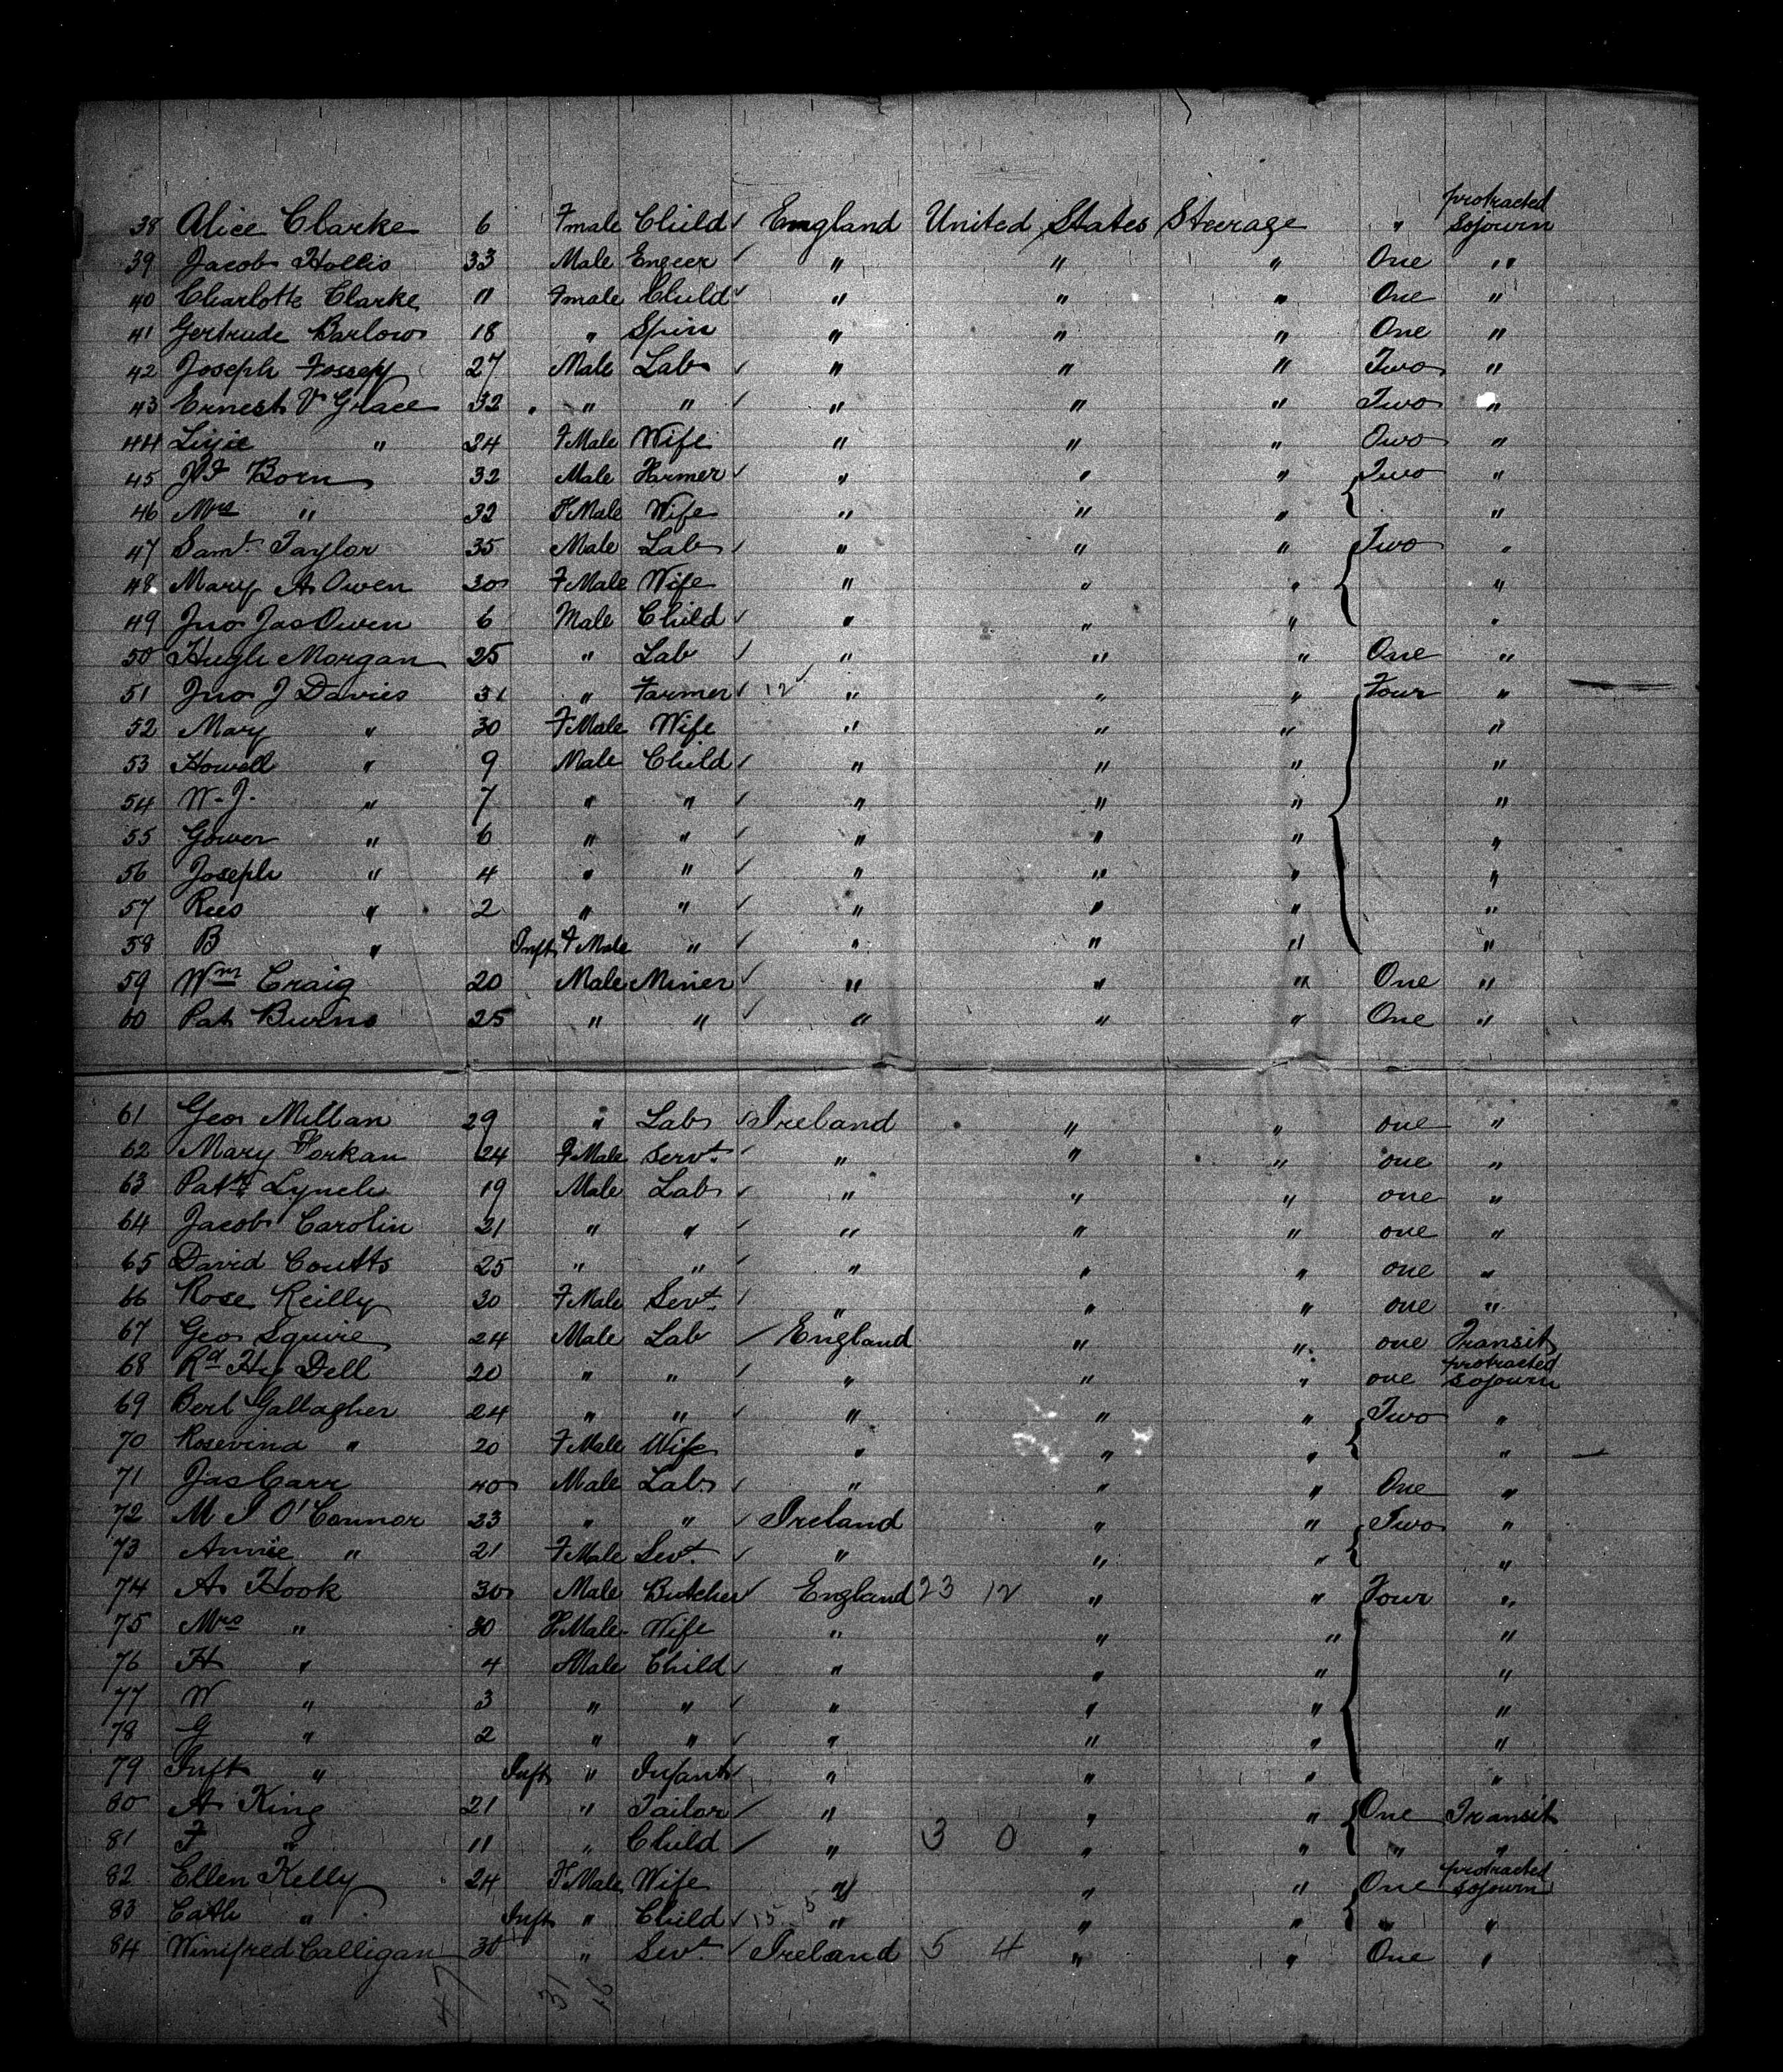 38 Alice Clarke 6 Fmale Child ✓ England United States Steerage " protracted sojourn
39 Jacob Hollis 33 Male Engeer ✓ " " " One "
40 Charlotte Clarke 11 Fmale Child ✓ " " " One "
41 Gertrude Barlow 18 " Spin " " " One "
42 Joseph 27 Male Lab ✓ " " " Two "
43 Ernest V Grace 32 " " ✓ " " " Two "
44 Lizzie " 24 FMale Wife " " " Two "
45 Born 32 Male Farmer ✓ " " " Two "
46 Mrs " 32 FMale Wife " " " "
47 Saml Taylor 35 Male Lab ✓ " " " Two "
48 Mary A Owen 30 FMale Wife " " " "
49 Jno Jas Owen 6 Male Child ✓ " " " "
50 Hugh Morgan 25 " Lab ✓ " " " One "
51 Jno J Davies 31 " Farmer ✓ 12 ✓ " " " Four "
52 Mary " 30 FMale Wife " " " "
53 Howell " 9 Male Child ✓ " " " "
54 W. J. " 7 " " ✓ " " " "
55 Gower " 6 " " ✓ " " " "
56 Joseph " 4 " " ✓ " " " "
57 Rees " 2 " " ✓ " " " "
58 B " Inft FMale " ✓ " " " "
59 Wm Craig 20 Male Miner ✓ " " " One "
60 Pat Burns 25 " " ✓ " " " One "
61 Geo Millan 29 " Lab ✓ Ireland " " one "
62 Mary Forkan 24 FMale Servt ✓ " " " one "
63 Patk Lynch 19 Male Lab ✓ " " " one "
64 Jacob Carolin 21 " " ✓ " " " one "
65 David Coutts 25 " " ✓ " " " one "
66 Rose Reilly 20 FMale Sevt ✓ " " " one "
67 Geo Squire 24 Male Lab ✓ England " " one Transit
68 Rd Hy Dell 20 " " ✓ " " " one protracted sojourn
69 Bert Gallagher 24 " " ✓ " " " Two "
70 Rosevina " 20 FMale Wife " " " "
71 Jas Carr 40 Male Lab ✓ " " " One "
72 M J O'Connor 23 " " ✓ Ireland " " Two "
73 Annie " 21 FMale Sevt ✓ " " " "
74 A Hook 30 Male Butcher ✓ England 23 12 " " Four "
75 Mrs " 30 FMale Wife " " " "
76 H " 4 Male Child ✓ " " " "
77 W " 3 " " ✓ " " " "
78 G " 2 " " ✓ " " " "
79 Inft " Inft " Infant ✓ " " " "
80 A King 21 " Tailor ✓ " " " One Transit
81 F " 11 " Child ✓ " 3 0 " " " "
82 Ellen Kelly 24 FMale Wife " " " One protracted sojourn
83 Cath " Inft " Child ✓ 15 5 " " " " "
84 Winifred Calligan 30 " Sevt ✓ Ireland 5 4 " " One "
47 31 16